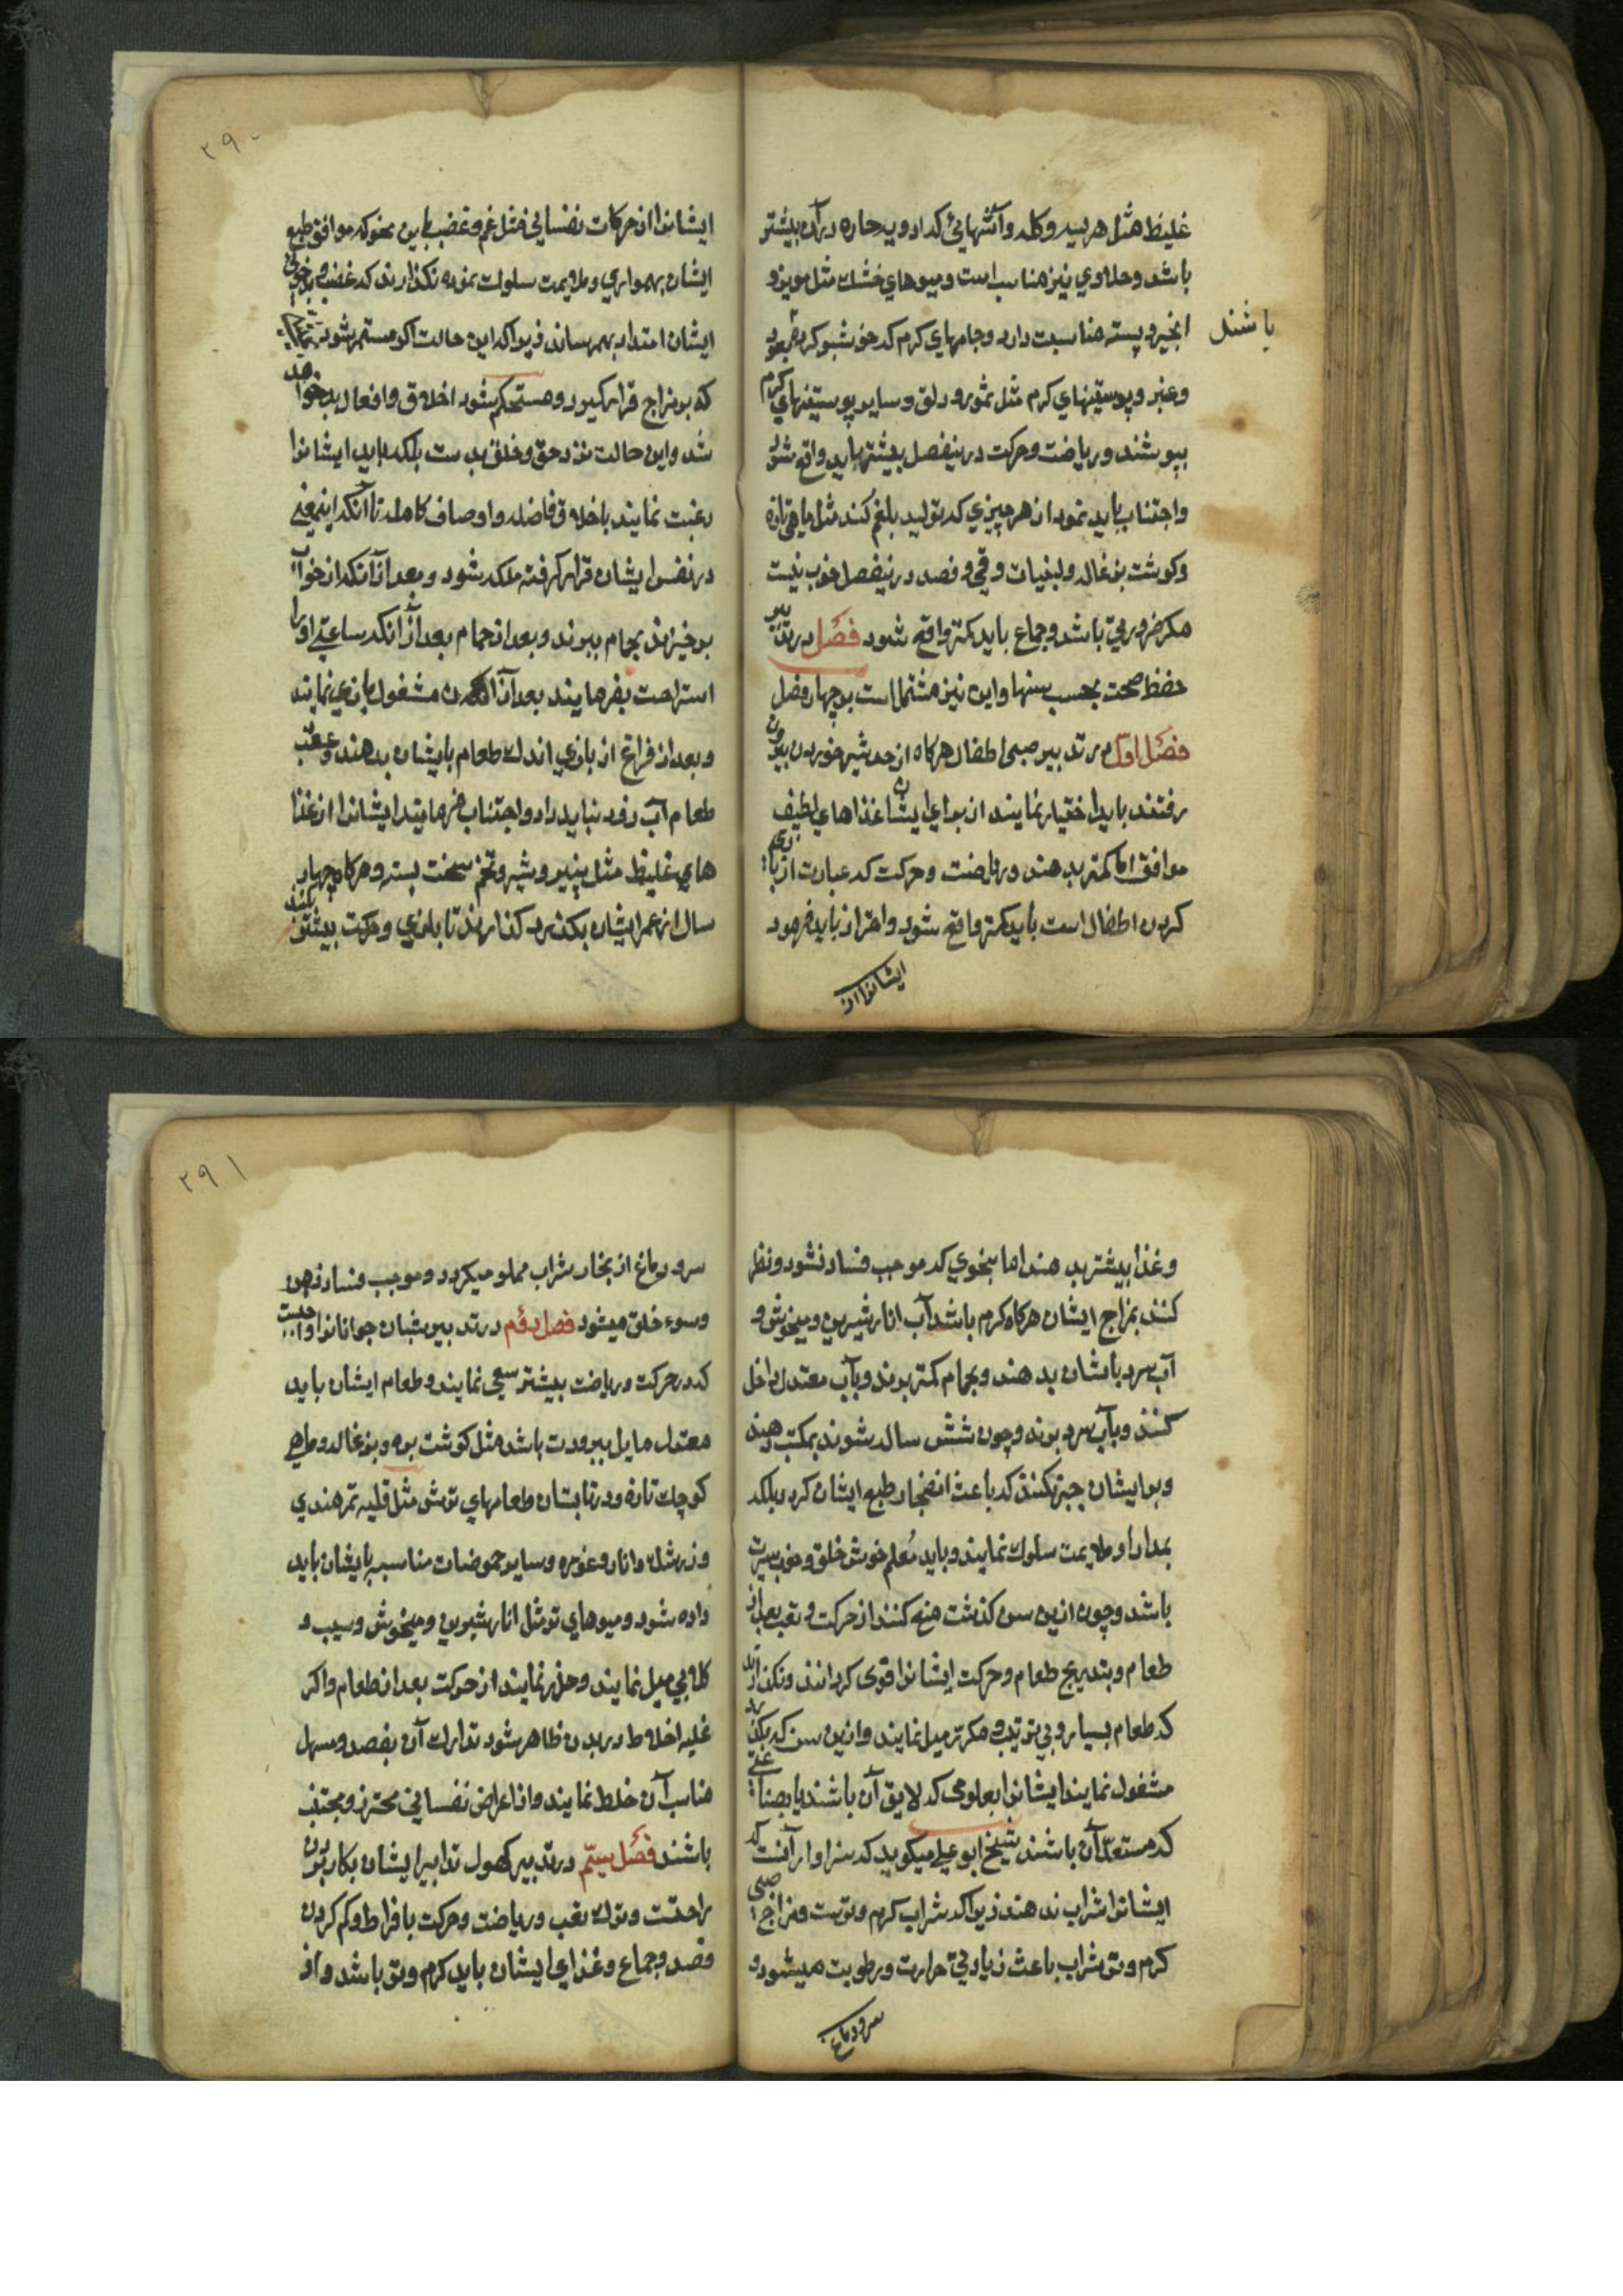 غلیظ مثل هریسه و کله و آشهائی که ادویه حاره در آن بیشتر
باشد و حلاوی نیز مناسب است و میوهای خشک مثل مویز و
انجیر و پسته مناسبت دارد و جامهای کرم که خوشبو کرده بعود
باشند
و عنبر و پوستینهای کرم مثل سمور و دلق و سایر پوستینهای کرم
بپوشند و ریاضت و حرکت درینفصل بیشتر باید واقع شود
و اجتناب باید نمود از هر چیزی که تولید بلغم کند مثل ماهی تازه
و کوشت بزغاله و لبنیات و قی و فصد درینفصل خوب نیست
مکر ضروری باشد و جماع باید کمتر واقع شود فصل در تدبیر
حفظ صحت بحسب سنها و این نیز مشتمل است بر چهار فصل
فصل اول در تدبیر صبی اطفال هرکاه از حد شیر خوردن بیرون
رفتند باید اختیار نمایند از برای ایشان غذاهای لطیف
موافق اما کمتر بدهند و ریاضت و حرکت که عبارت از بازی
کردن اطفال است باید کمتر واقع شود و احتراز باید فرمود
ایشانرا از
۲۹۰
ایشانرا از حرکات نفسانی مثل غم و غضب باین نحو که موافق طبع
ایشان بهمواری و ملایمت سلوک نموده نکذارند که غضب و بدخوئی
ایشان امتداد بهمرساند زیرا که این حالت اکر مستمر شود
که بر مزاج قرار کیرد و مستحکم شود اخلاق و افعال بد خواهد
شد و این حالت نزد حق و خلق بدست بلکه باید ایشانرا
رغبت نمایند باخلاق فاضله و اوصاف کامله تا آنکه اینمعنی
در نفس ایشان قرار کرفته ملکه شود و بعد از آنکه از خواب
برخیزند بحمام ببرند و بعد از حمام بعد از آنکه ساعتی او را
استراحت بفرمایند بعد از آن مشغول بازی نمایند
و بعد از فراغ از بازی اندک طعام بایشان بدهند و عقب
طعام آب زود نباید داد و اجتناب فرمایند ایشانرا از غذا
های غلیظ مثل پنیر و شیر و تخم سخت بسته و هرکاه چهار
سال از عمر ایشان بکذرد کذارند تا بازی و حرکت بیشتر کنند
و غذا بیشتر بدهند اما بنحوی که موجب فساد نشود و نظر
کنند بمزاج ایشان هرکاه کرم باشد آب انار شیرین و میخوش و
آب سرد بایشان بدهند و بحمام کمتر برند و بآب معتدل داخل
کنند و بآب سرد برند و چون شش ساله شوند بمکتب دهند
و بر ایشان جبر نکنند که باعث انضجار طبع ایشان کردد بلکه
بمدارا و ملایمت سلوک نمایند و باید معلم خوش خلق و خوب سیرت
باشد و چون ازین سن کذشت منع کنند از حرکت و تعب بعد از
طعام و بتدریج طعام و حرکت ایشانرا قوی کردانند و نکذارند
که طعام بسیار و بی ترتیب و مکرر میل نمایند و ازین سن که بکذرد
مشغول نمایند ایشانرا بعلومی که لایق آن باشند یا بصناعتی
که مستعد آن باشند شیخ ابو علی میکوید که سزاوار آنست که
ایشانرا شراب ندهند زیرا که شراب کرم و ترست و مزاج صبی
کرم و تر شراب باعث زیادتی حرارت و رطوبت میشود و
سر و دماغ
۲۹۱
سر و دماغ از بخار شراب مملو میکردد و موجب فساد ذهن
و سوء خلق میشود فصل دوم در تدبیر شبان جوانانرا واجبست
که در حرکت و ریاضت بیشتر سعی نمایند و طعام ایشان باید
معتدل مایل ببرودت باشد مثل کوشت بره و بزغاله و ماهی
کوچک تازه و در تابستان طعامهای ترش مثل قلیه تمرهندی
و زرشک و انار و غوره و سایر حموضات مناسبه بایشان باید
داده شود و میوهای تر مثل انار شیرین و میخوش و سیب و
کلابی میل نمایند و حذر نمایند از حرکت بعد از طعام و اکر
غلبه اخلاط در بدن ظاهر شود تدارک آن بفصد و مسهل
مناسب آن خلط نمایند و از اعراض نفسانی محترز و مجتنب
باشند فصل سیم در تدبیر کهول تدابیر ایشان بکار بردن
راحتست و ترک تعب و ریاضت و حرکت بافراط و کم کردن
فصد و جماع و غذای ایشان باید کرم و تر باشد و از